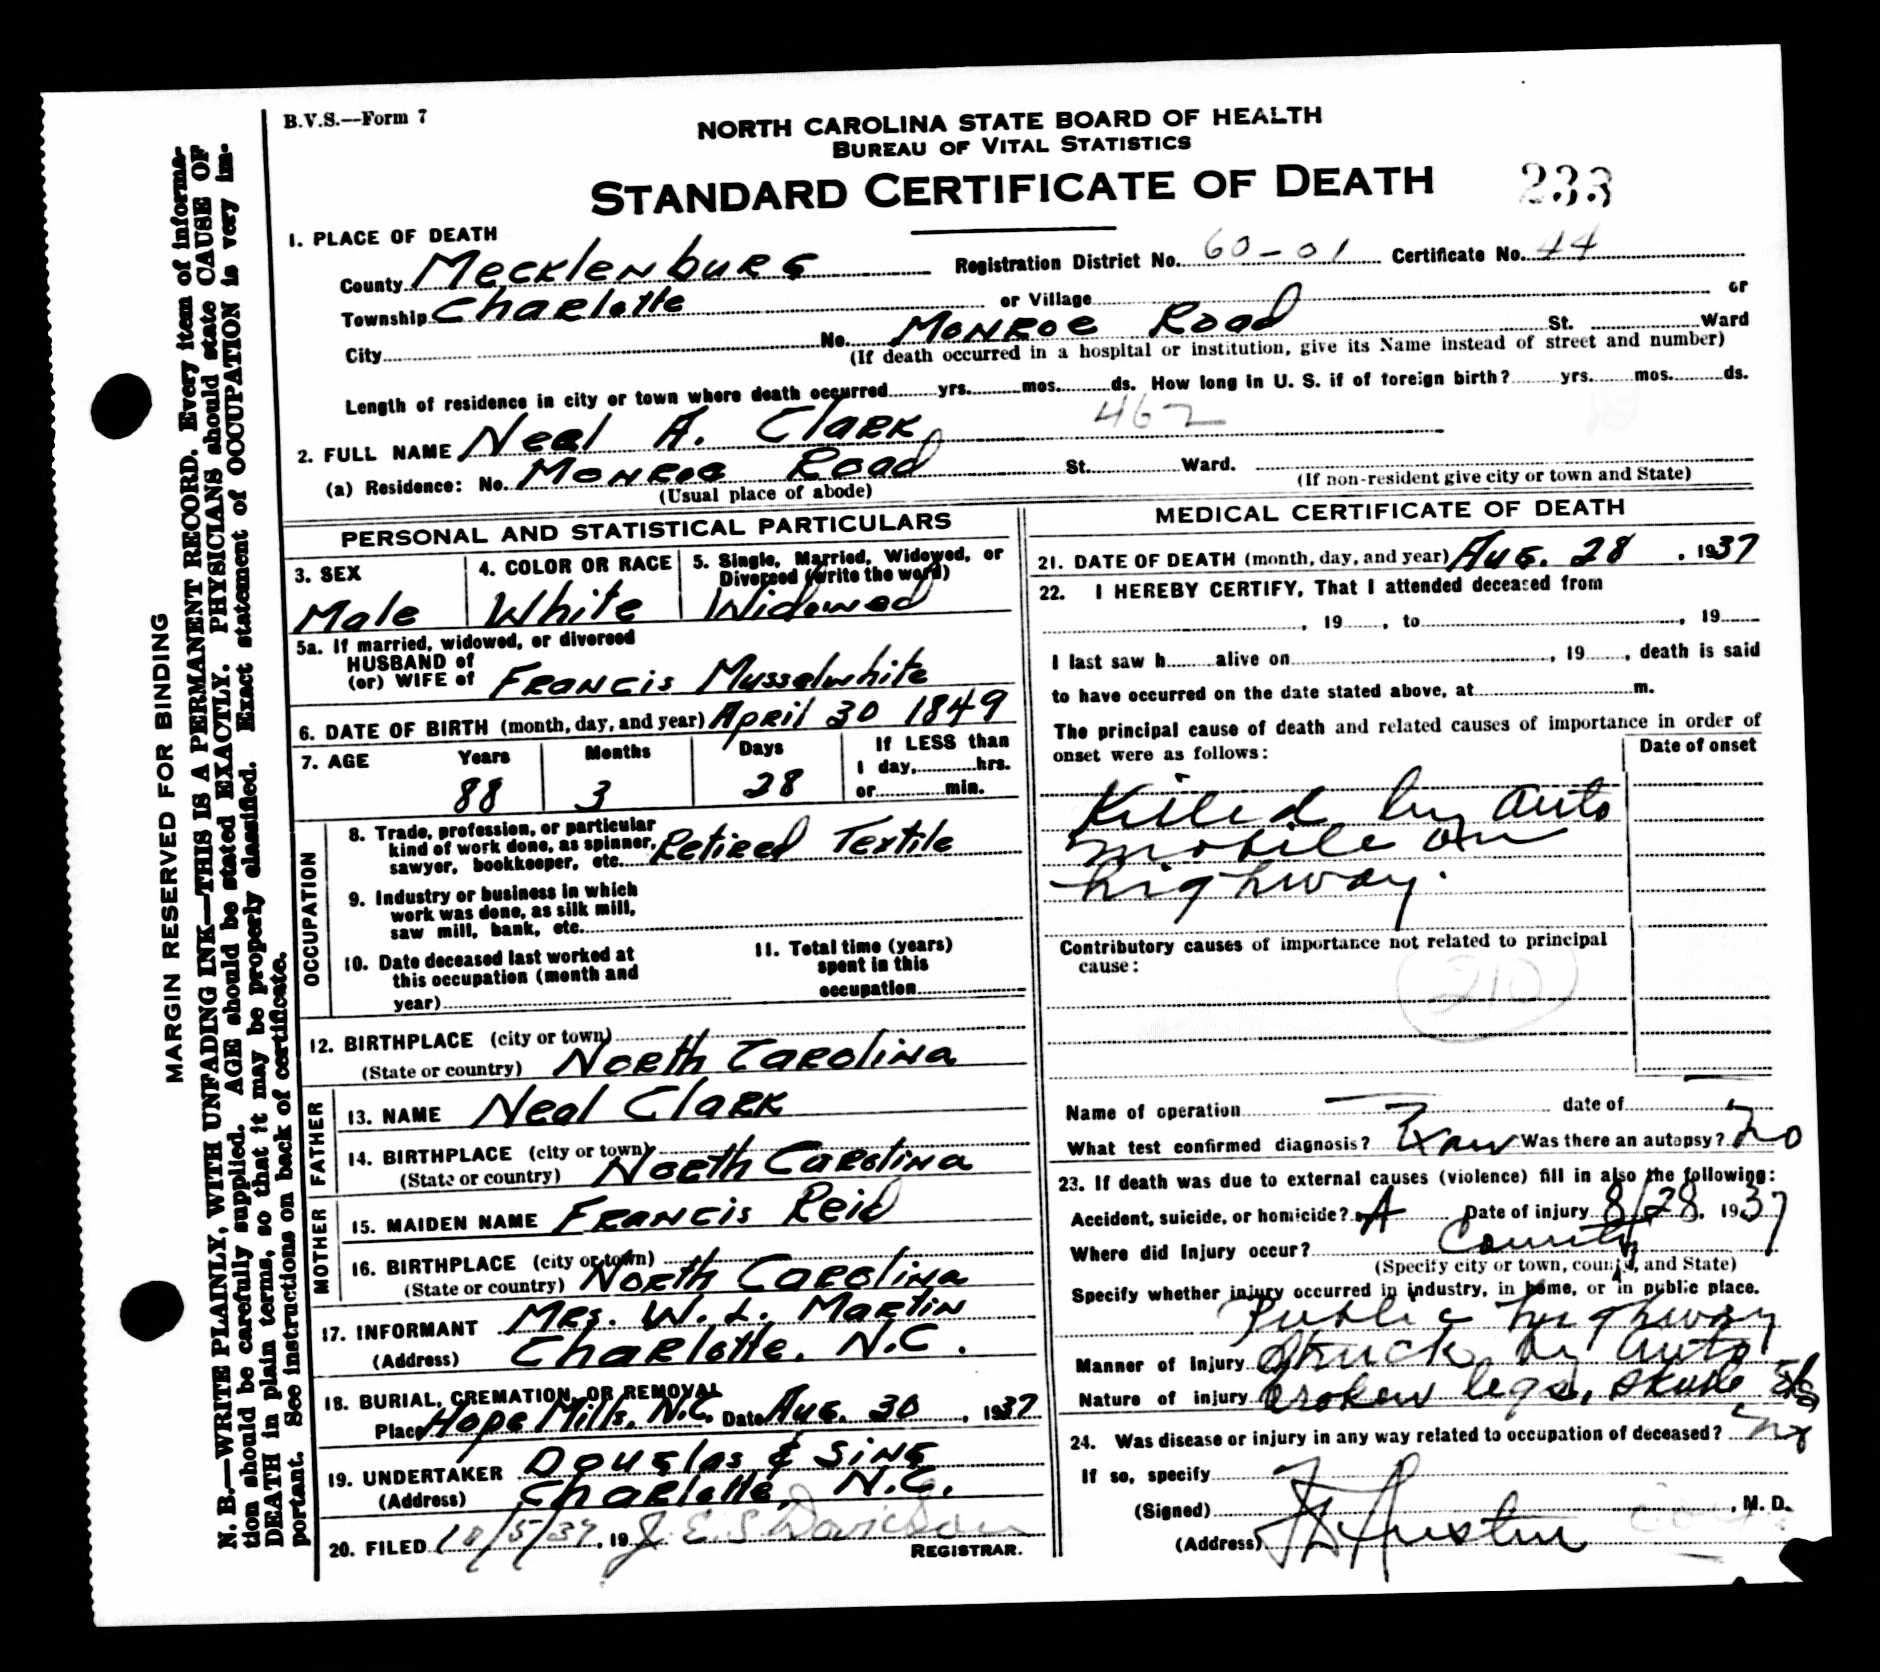 B.V.S.—Form 7
NORTH CAROLINA STATE BOARD OF HEALTH
BUREAU OF VITAL STATISTICS
STANDARD CERTIFICATE OF DEATH 233
1. PLACE OF DEATH
County Mecklenburg Registration District No. 60-01 Certificate No. 44
Township Charlotte or Village or
City No. Monroe Road St. Ward
(If death occurred in a hospital or institution, give its Name instead of street and number)
Length of residence in city or town where death occurred yrs. mos. ds. How long in U. S. if of foreign birth? yrs. mos. ds.
462
2. FULL NAME Neal A. Clark
(a) Residence: No. Monroe Road St. Ward.
(Usual place of abode) (If non-resident give city or town and State)
PERSONAL AND STATISTICAL PARTICULARS
3. SEX 4. COLOR OR RACE 5. Single, Married, Widowed, or
Divorced (write the word)
Male White Widowed
5a. If married, widowed, or divorced
HUSBAND of
(or) WIFE of Francis Musselwhite
6. DATE OF BIRTH (month, day, and year) April 30 1849
7. AGE Years Months Days If LESS than
1 day, hrs.
88 3 28 or min.
OCCUPATION
8. Trade, profession, or particular
kind of work done, as spinner,
sawyer, bookkeeper, etc. Retired Textile
9. Industry or business in which
work was done, as silk mill,
saw mill, bank, etc.
10. Date deceased last worked at
this occupation (month and
year)
11. Total time (years)
spent in this
occupation
12. BIRTHPLACE (city or town)
(State or country) North Carolina
FATHER
13. NAME Neal Clark
14. BIRTHPLACE (city or town)
(State or country) North Carolina
MOTHER
15. MAIDEN NAME Francis Reid
16. BIRTHPLACE (city or town)
(State or country) North Carolina
17. INFORMANT Mrs. W. L. Martin
(Address) Charlotte, N.C.
18. BURIAL, CREMATION, OR REMOVAL
Place Hope Mills, N.C. Date Aug. 30, 1937
19. UNDERTAKER Douglas & Sing
(Address) Charlotte, N.C.
20. FILED 10/5/37, 19 J. E. S. Davidson
REGISTRAR.
MEDICAL CERTIFICATE OF DEATH
21. DATE OF DEATH (month, day, and year) Aug. 28, 1937
22. I HEREBY CERTIFY, That I attended deceased from
, 19 , to , 19
I last saw h alive on , 19 , death is said
to have occurred on the date stated above, at m.
The principal cause of death and related causes of importance in order of
onset were as follows: Date of onset
Killed by auto
mobile on
highway.
Contributory causes of importance not related to principal
cause:
210
Name of operation date of
What test confirmed diagnosis? Exam Was there an autopsy? no
23. If death was due to external causes (violence) fill in also the following:
Accident, suicide, or homicide? A Date of injury 8/28, 1937
Where did injury occur? County
(Specify city or town, county, and State)
Specify whether injury occurred in industry, in home, or in public place.
Public highway
Manner of injury Struck by auto
Nature of injury broken legs, skull
24. Was disease or injury in any way related to occupation of deceased? no
If so, specify
(Signed) Austin, M. D.
(Address)
MARGIN RESERVED FOR BINDING
N. B.—WRITE PLAINLY, WITH UNFADING INK—THIS IS A PERMANENT RECORD. Every item of informa-
tion should be carefully supplied. AGE should be stated EXACTLY. PHYSICIANS should state CAUSE OF
DEATH in plain terms, so that it may be properly classified. Exact statement of OCCUPATION is very im-
portant. See instructions on back of certificate.